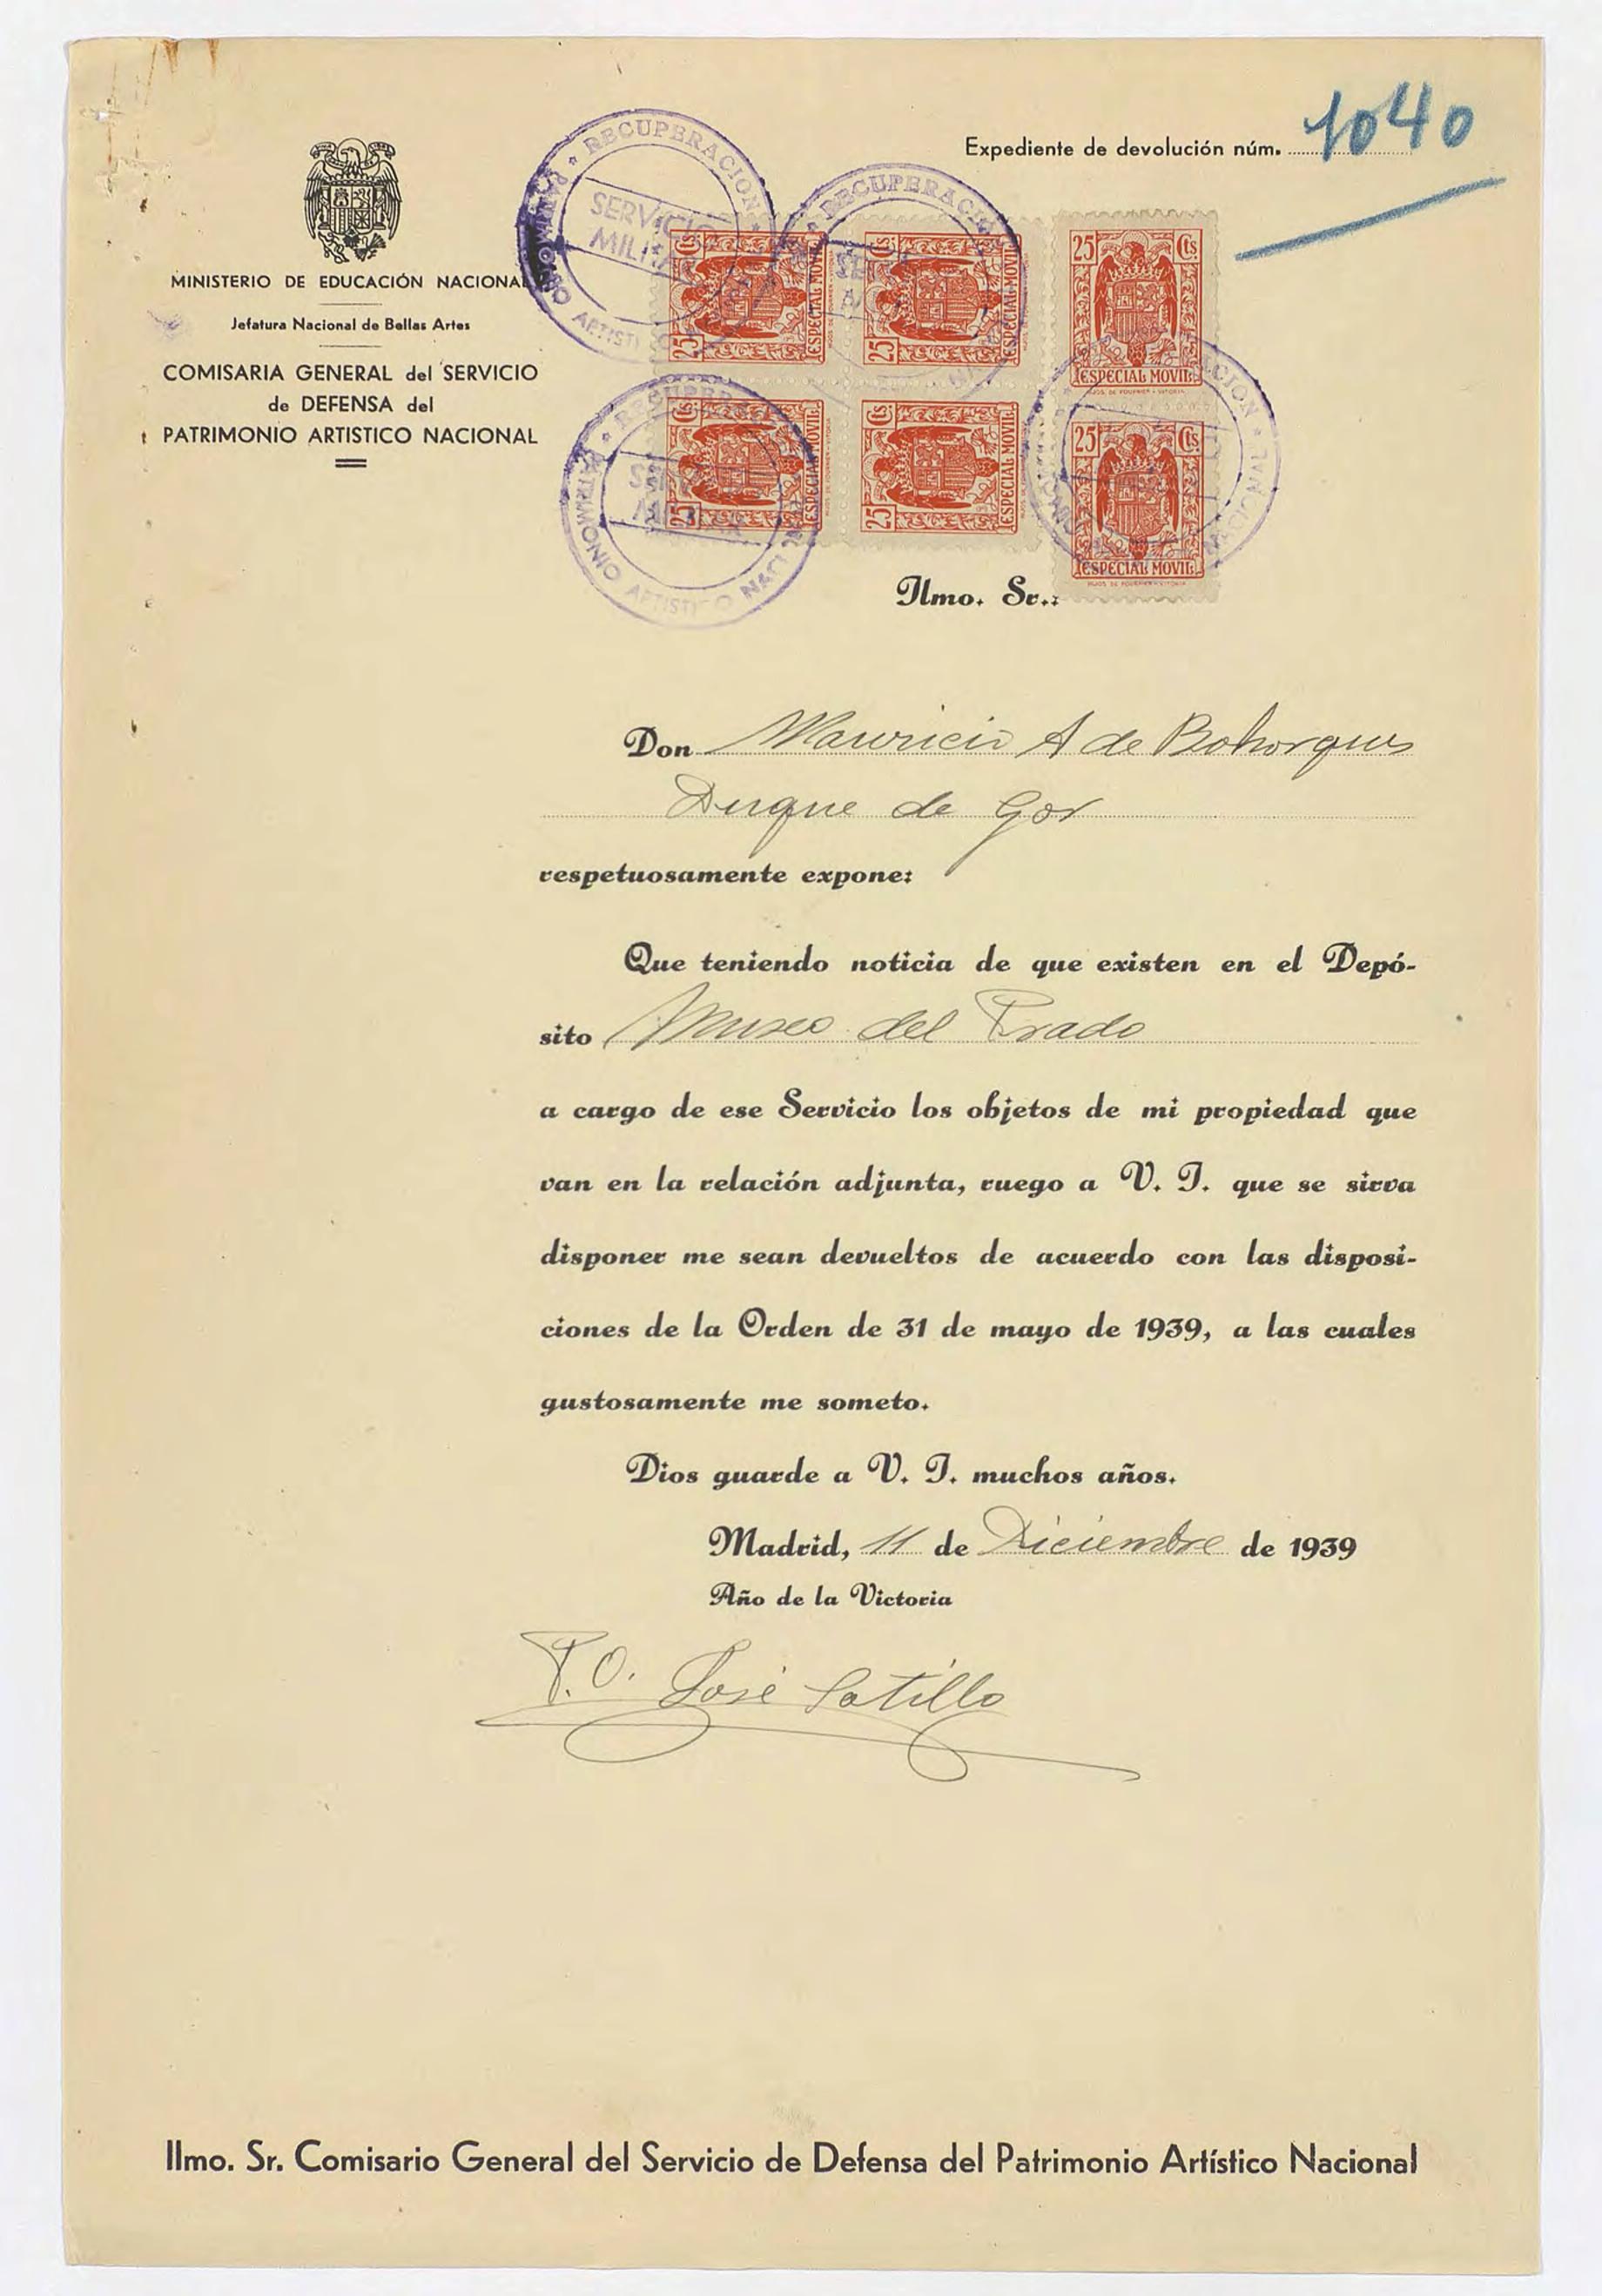 Expediente de devolución núm. 1040
MINISTERIO DE EDUCACIÓN NACIONAL
Jefatura Nacional de Bellas Artes
COMISARIA GENERAL del SERVICIO
de DEFENSA del
PATRIMONIO ARTISTICO NACIONAL
RECUPERACION
PATRIMONIO ARTISTICO
SERVICIO
MILITAR
RECUPERACION
25 Cts. ESPECIAL MOVIL
25 Cts. ESPECIAL MOVIL
25 Cts
ESPECIAL MOVIL
25 Cts. ESPECIAL MOVIL
25 Cts. ESPECIAL MOVIL
25 Cts
ESPECIAL MOVIL
PATRIMONIO ARTISTICO NACIONAL
Ilmo. Sr.:
Don Mauricio A de Bohorques
Duque de Gor
respetuosamente expone:
Que teniendo noticia de que existen en el Depó-
sito Museo del Prado
a cargo de ese Servicio los objetos de mi propiedad que
van en la relación adjunta, ruego a V. I. que se sirva
disponer me sean devueltos de acuerdo con las disposi-
ciones de la Orden de 31 de mayo de 1939, a las cuales
gustosamente me someto.
Dios guarde a V. I. muchos años.
Madrid, 11 de Diciembre de 1939
Año de la Victoria
P.O. José
Ilmo. Sr. Comisario General del Servicio de Defensa del Patrimonio Artístico Nacional